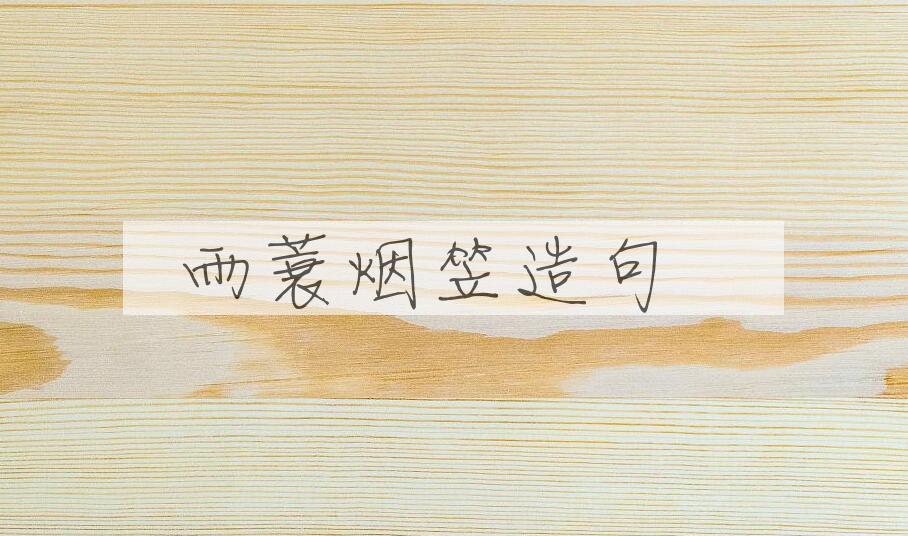 雨蓑烟笠造句